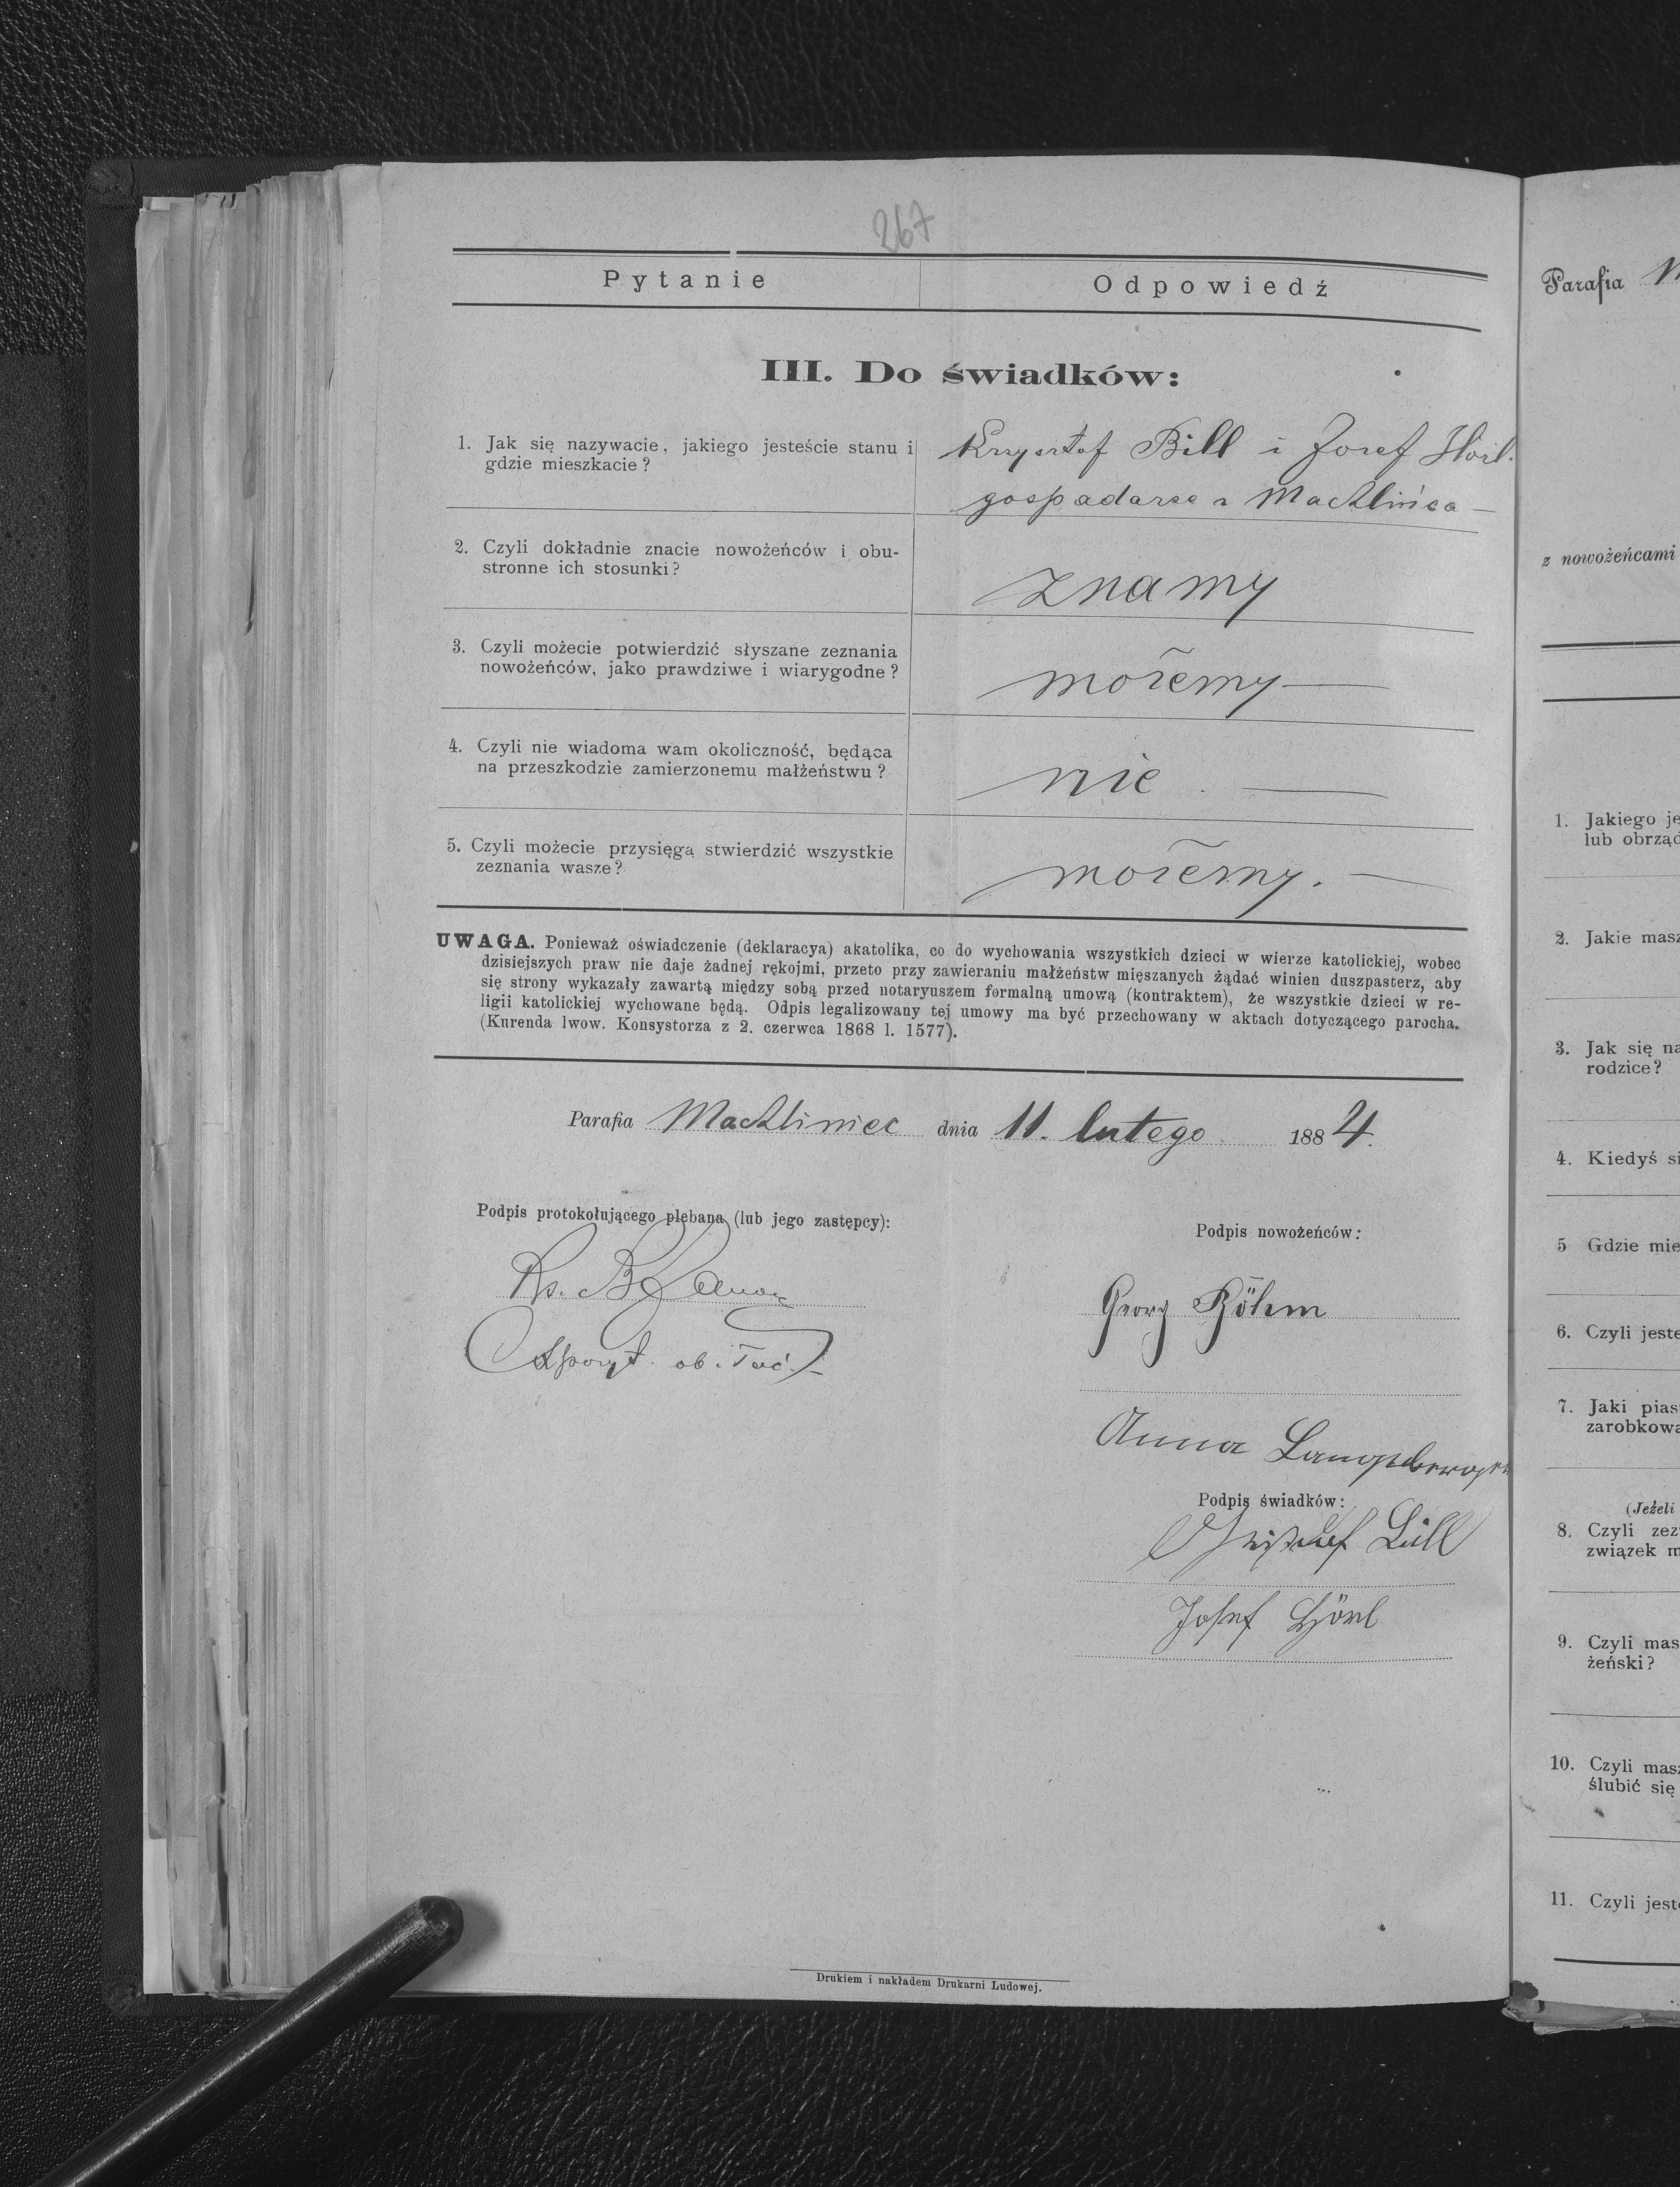 267
Pytanie Odpowiedź
III. Do świadków:
1. Jak się nazywacie, jakiego jesteście stanu i
gdzie mieszkacie?
Krzysztof Bill i Josef Hörl.
gospodarze z Machlińca —
2. Czyli dokładnie znacie nowożeńców i obu-
stronne ich stosunki?
znamy
3. Czyli możecie potwierdzić słyszane zeznania
nowożeńców, jako prawdziwe i wiarygodne?
możemy —
4. Czyli nie wiadoma wam okoliczność, będąca
na przeszkodzie zamierzonemu małżeństwu?
nie. —
5. Czyli możecie przysięgą stwierdzić wszystkie
zeznania wasze?
możemy. —
UWAGA. Ponieważ oświadczenie (deklaracya) akatolika, co do wychowania wszystkich dzieci w wierze katolickiej, wobec
dzisiejszych praw nie daje żadnej rękojmi, przeto przy zawieraniu małżeństw mięszanych żądać winien duszpasterz, aby
się strony wykazały zawartą między sobą przed notaryuszem formalną umową (kontraktem), że wszystkie dzieci w re-
ligii katolickiej wychowane będą. Odpis legalizowany tej umowy ma być przechowany w aktach dotyczącego parocha.
(Kurenda lwow. Konsystorza z 2. czerwca 1868 l. 1577).
Parafia Machliniec dnia 11. lutego 1884.
Podpis protokołującego plebana (lub jego zastępcy):
Ks.
ob. łać.
Podpis nowożeńców:
Georg Böhm
Anna
Podpis świadków:
Josef Hörl
Drukiem i nakładem Drukarni Ludowej.
Parafia
z nowożeńcami
1. Jakiego je
lub obrząd
2. Jakie masz
3. Jak się na
rodzice?
4. Kiedyś si
5 Gdzie mie
6. Czyli jeste
7. Jaki pias
zarobkowa
(Jeżeli
8. Czyli zez
związek m
9. Czyli mas
żeński?
10. Czyli masz
ślubić się
11. Czyli jest